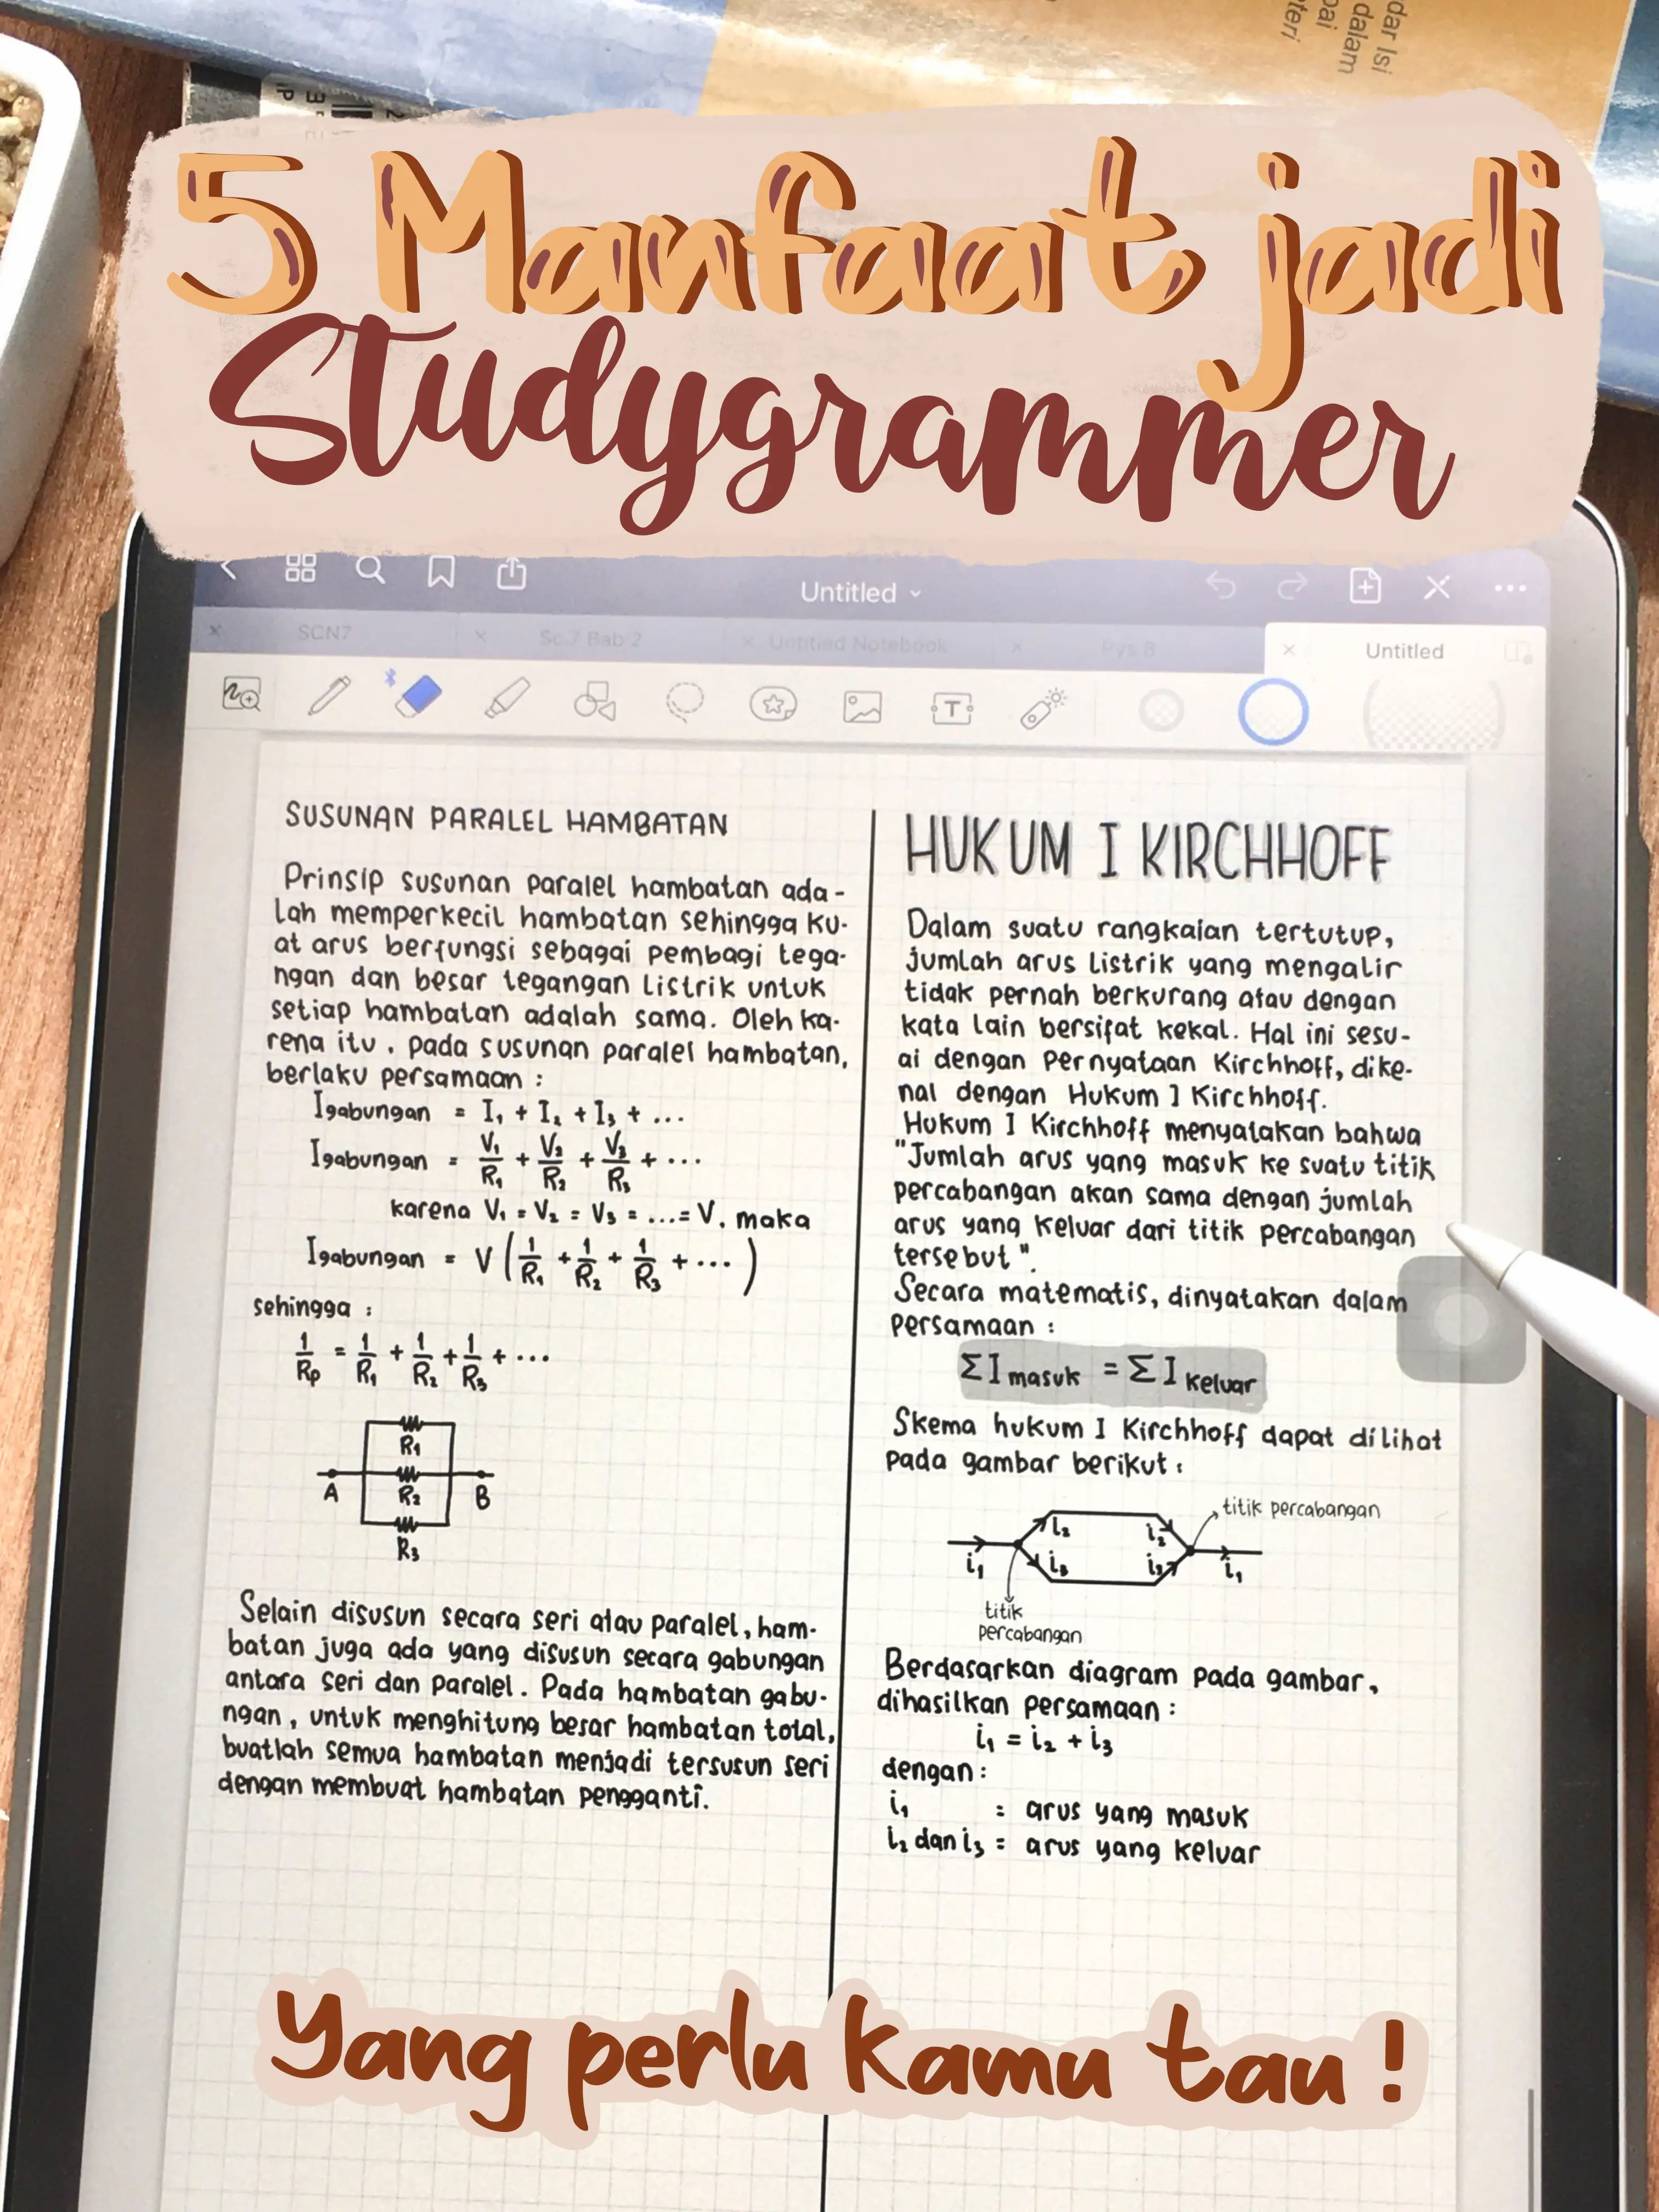 dar Isi
dalam
pai
teri
5 Manfaat jadi
Studygrammer
Untitled
SCN7
Sc.7 Bab 2
Untitled Notebook
Pys 8
Untitled
SUSUNAN PARALEL HAMBATAN
Prinsip susunan paralel hambatan ada-
lah memperkecil hambatan sehingga ku-
at arus berfungsi sebagai pembagi tega-
ngan dan besar tegangan listrik untuk
setiap hambatan adalah sama. Oleh ka-
rena itu, pada susunan paralel hambatan,
berlaku persamaan :
Igabungan = I₁ + I₂ + I₃ + ...
Igabungan = V₁/R₁ + V₂/R₂ + V₃/R₃ + ...
karena V₁ = V₂ = V₃ = ... = V, maka
Igabungan = V (1/R₁ + 1/R₂ + 1/R₃ + ...)
sehingga :
1/Rp = 1/R₁ + 1/R₂ + 1/R₃ + ...
R₁
A R₂ B
R₃
Selain disusun secara seri atau paralel, ham-
batan juga ada yang disusun secara gabungan
antara seri dan paralel. Pada hambatan gabu-
ngan, untuk menghitung besar hambatan total,
buatlah semua hambatan menjadi tersusun seri
dengan membuat hambatan pengganti.
HUKUM I KIRCHHOFF
Dalam suatu rangkaian tertutup,
jumlah arus listrik yang mengalir
tidak pernah berkurang atau dengan
kata lain bersifat kekal. Hal ini sesu-
ai dengan Pernyataan Kirchhoff, dike-
nal dengan Hukum I Kirchhoff.
Hukum I Kirchhoff menyatakan bahwa
"Jumlah arus yang masuk ke suatu titik
percabangan akan sama dengan jumlah
arus yang keluar dari titik percabangan
tersebut".
Secara matematis, dinyatakan dalam
persamaan :
ΣI masuk = ΣI keluar
Skema hukum I Kirchhoff dapat dilihat
pada gambar berikut :
titik percabangan
i₂ i₂
i₁ i₃ i₃ i₁
titik
percabangan
Berdasarkan diagram pada gambar,
dihasilkan persamaan :
i₁ = i₂ + i₃
dengan :
i₁ = arus yang masuk
i₂ dan i₃ = arus yang keluar
Yang perlu kamu tau !